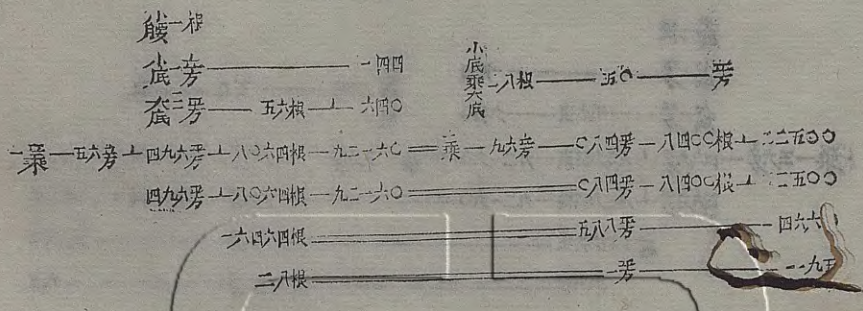 小腰一根
小底一平方——一四四
大底一平方——五六根⊥六四〇
小底乘大底 二八根——一五〇——一平方
一三乘方—五六立方⊥四九六平方⊥八〇六四根—九二一六〇＝一三乘方—五六立方⊥一〇八四平方—八四〇〇根⊥二二五〇〇
四九六平方⊥八〇六四根—九二一六〇＝一〇八四平方—八四〇〇根⊥二二五〇〇
一六四六四根＝五八八平方——四六六
二八根＝一平方——一九五